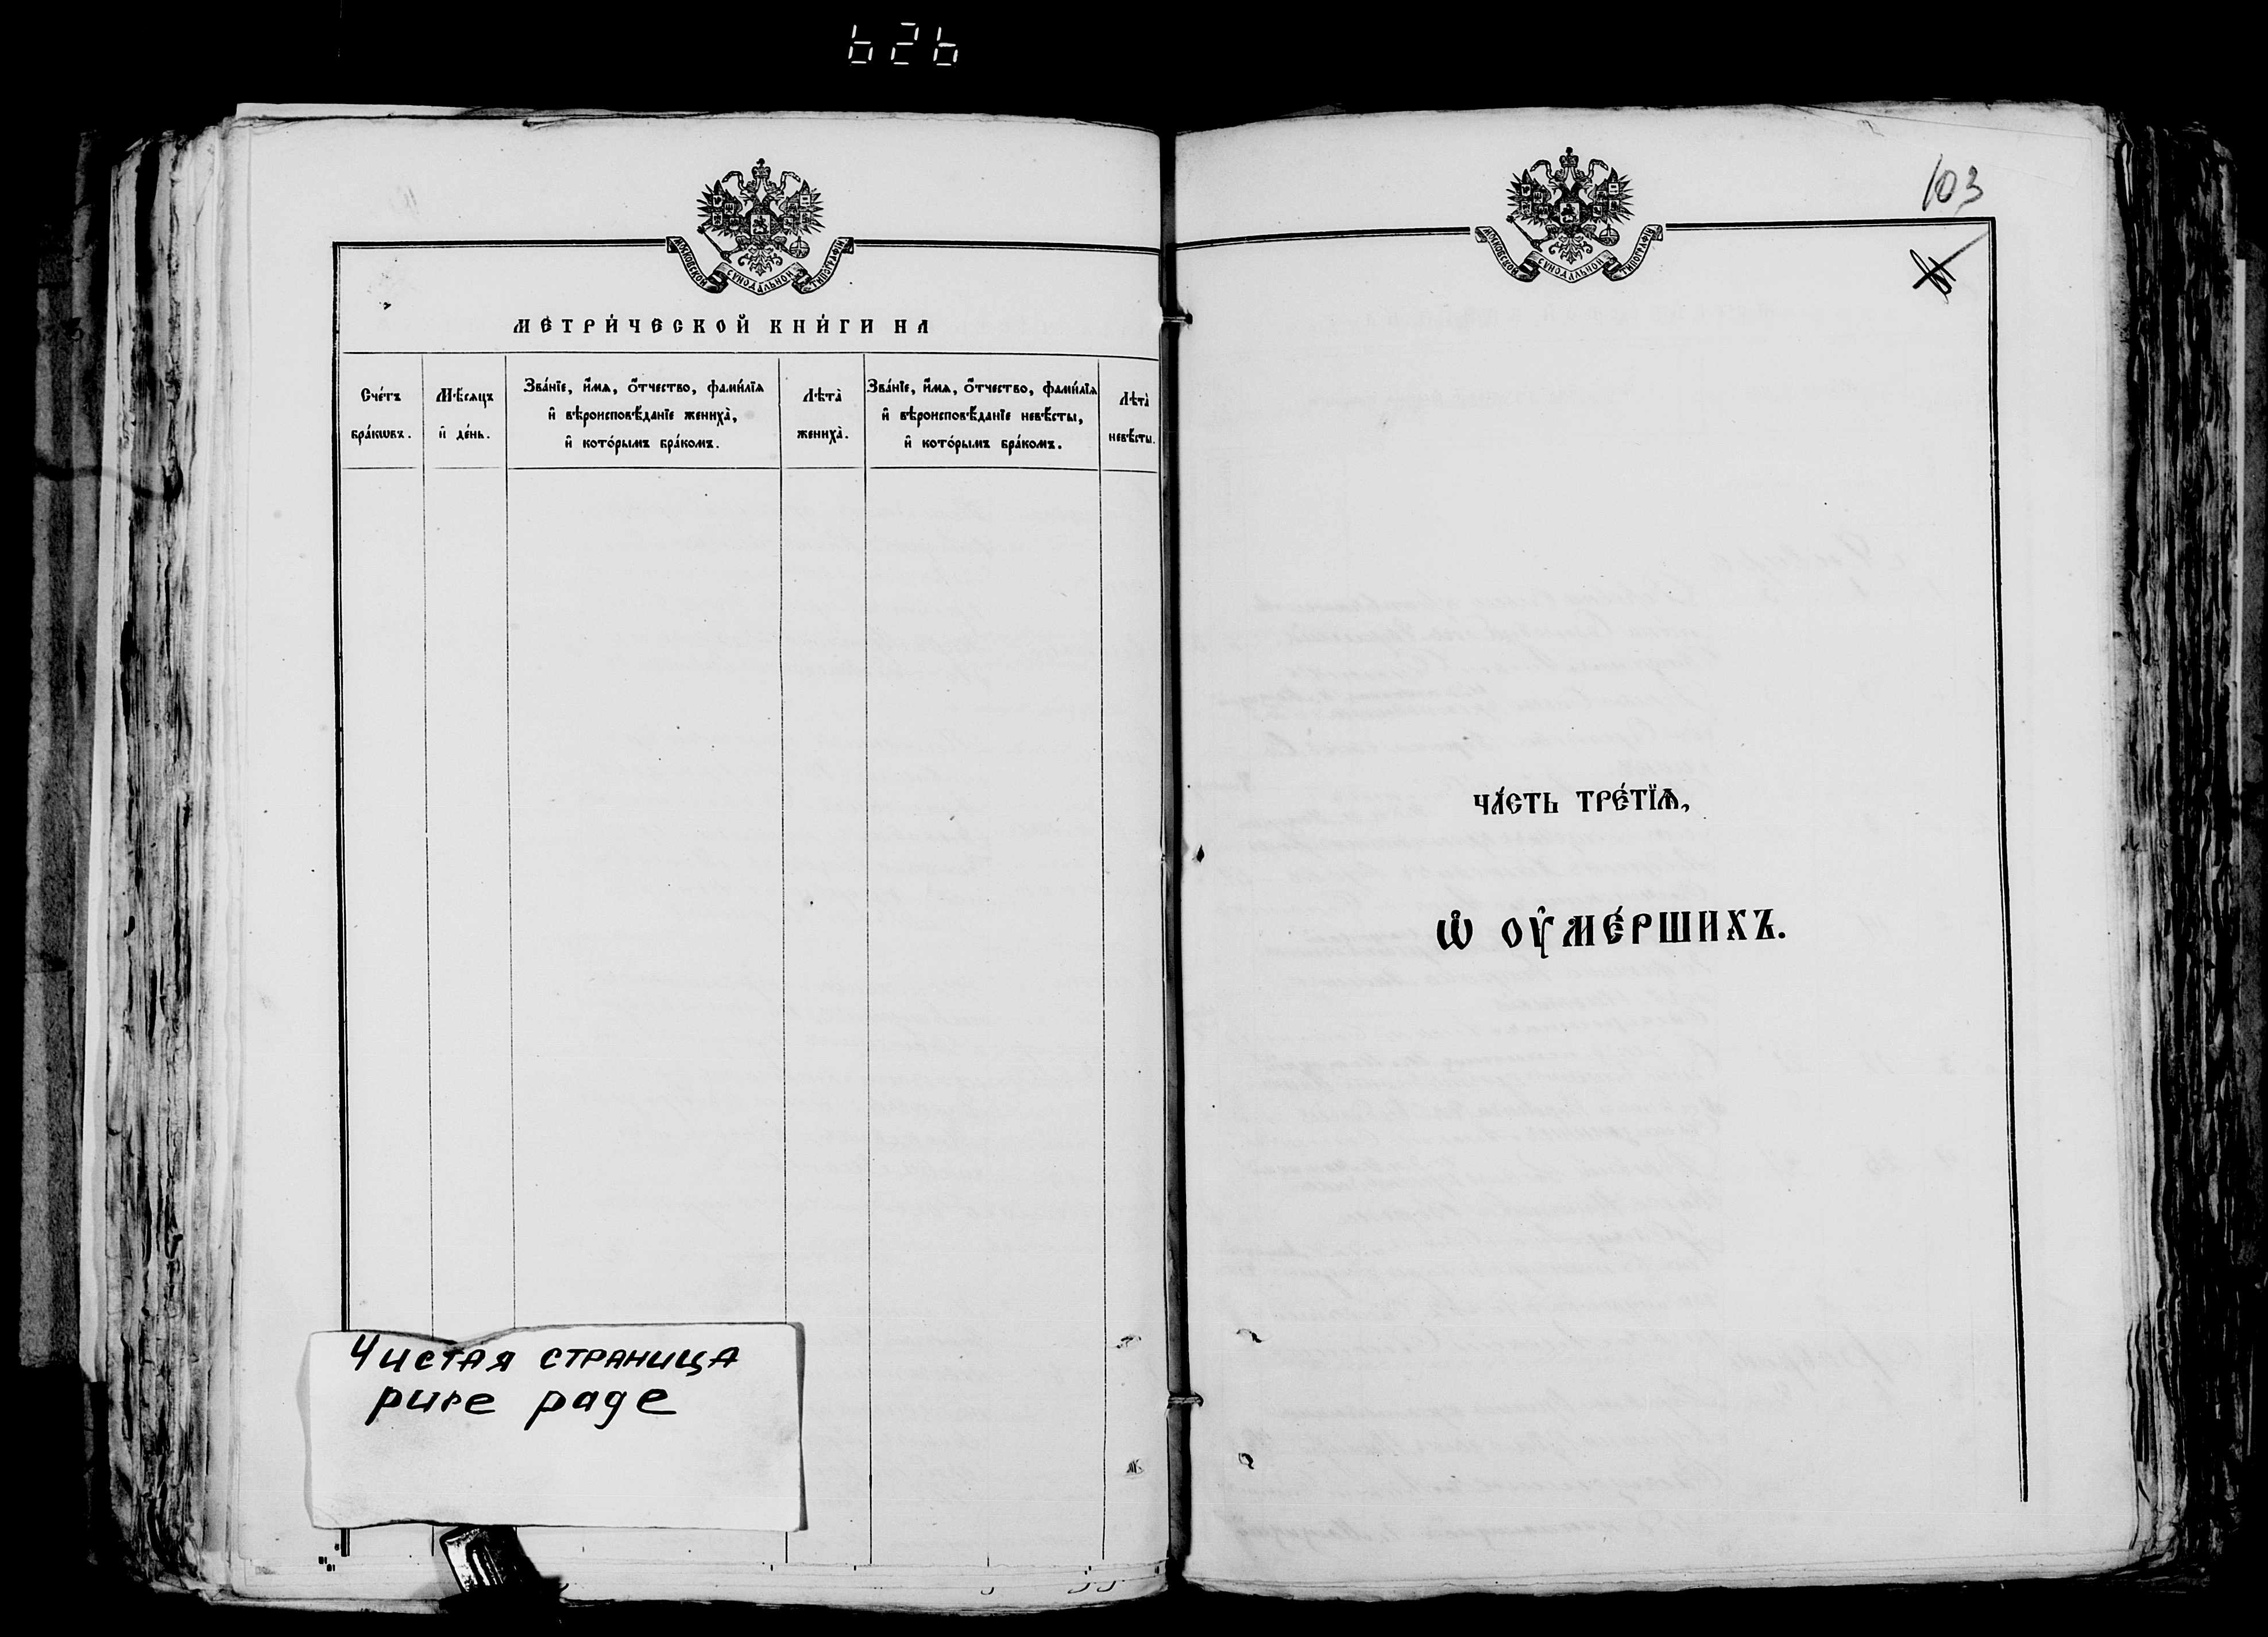 626
МОСКОВСКОЙ СѴНОДАЛЬНОЙ ТИПОГРАФІИ
МЕТРИ́ЧЕСКОЙ КНИ́ГИ НА
Сче́тъ бра́кѡвъ.
Мѣ́сяцъ и҆ де́нь.
Зва́нїе, и҆́мѧ, ѻ҆́тчество, фами́лїѧ
и҆ вѣроисповѣ́данїе жениха̀,
и҆ кото́рымъ бра́комъ.
Лѣта̀ жениха̀.
Зва́нїе, и҆́мѧ, ѻ҆́тчество, фами́лїѧ
и҆ вѣроисповѣ́данїе невѣ́сты,
и҆ кото́рымъ бра́комъ.
Лѣта̀ невѣ́сты.
Чистая страница
pure page
103
МОСКОВСКОЙ СѴНОДАЛЬНОЙ ТИПОГРАФІИ
ЧА́СТЬ ТРЕ́ТЇѦ,
Ѡ҆ ОУ҆МЕ́РШИХЪ.